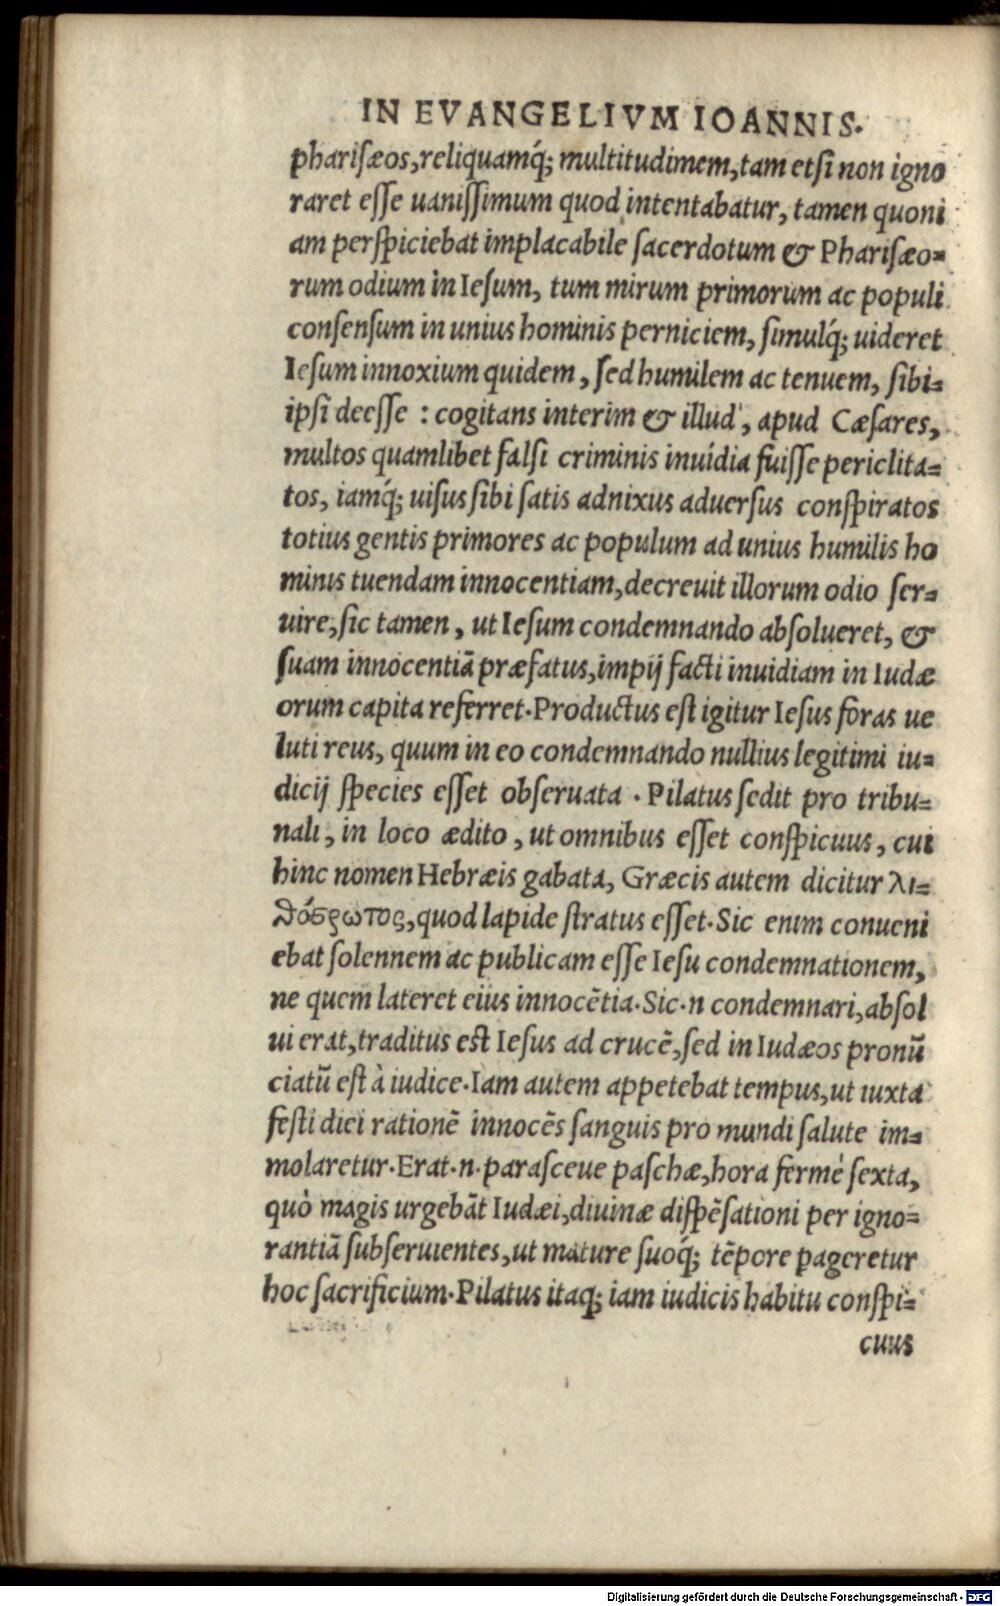 IN EVANGELIVM IOANNIS.
phariſæos,reliquamq́; multitudinem,tam etſi non igno
raret eſſe uaniſſimum quod intentabatur, tamen quoni
am perſpiciebat implacabile ſacerdotum & Phariſæo=
rum odium in Ieſum, tum mirum primorum ac populi
conſenſum in unius hominis perniciem, ſimulq́; uideret
Ieſum innoxium quidem, ſed humilem ac tenuem, ſibi=
ipſi deeſſe : cogitans interim & illud, apud Cæſares,
multos quamlibet falſi criminis inuidia fuiſſe periclita=
tos, iamq́; uiſus ſibi ſatis adnixus aduerſus conſpiratos
totius gentis primores ac populum ad unius humilis ho
minis tuendam innocentiam,decreuit illorum odio ſer=
uire,ſic tamen, ut Ieſum condemnando abſolueret, &
ſuam innocentiā præfatus,impij facti inuidiam in Iudæ
orum capita referret.Productus eſt igitur Ieſus foras ue
luti reus, quum in eo condemnando nullius legitimi iu=
dicij ſpecies eſſet obſeruata . Pilatus ſedit pro tribu=
nali, in loco ædito, ut omnibus eſſet conſpicuus, cui
hinc nomen Hebræis gabata, Græcis autem dicitur λι=
θόςρωτος,quod lapide ſtratus eſſet.Sic enim conueni
ebat ſolennem ac publicam eſſe Ieſu condemnationem,
ne quem lateret eius innocētia.Sic.n condemnari,abſol
ui erat,traditus eſt Ieſus ad crucē,ſed in Iudæos pronū
ciatū eſt à iudice.Iam autem appetebat tempus,ut iuxta
feſti diei rationē innocēs ſanguis pro mundi ſalute im=
molaretur.Erat.n.paraſceue paſchæ,hora fermè ſexta,
quò magis urgebāt Iudæi,diuinæ diſpēſationi per igno=
rantiā ſubſeruientes,ut mature ſuoq́; tēpore pageretur
hoc ſacrificium.Pilatus itaq; iam iudicis habitu conſpi=
cuus
Digitalisierung gefördert durch die Deutsche Forschungsgemeinschaft - DFG